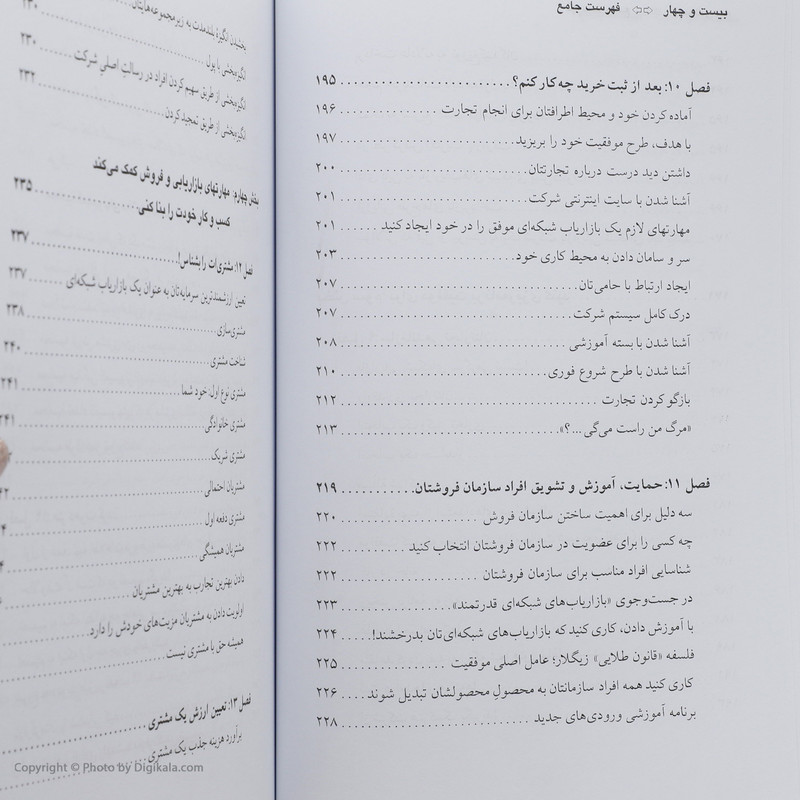 بیست و چهار ⇦⇨ فهرست جامع
فصل ۱۰: بعد از ثبت خرید چه کار کنم؟ ........................ ۱۹۵
آماده کردن خود و محیط اطرافتان برای انجام تجارت ............... ۱۹۶
با هدف، طرح موفقیت خود را بریزید ........................ ۱۹۷
داشتن دید درست درباره تجارتتان ........................ ۲۰۰
آشنا شدن با سایت اینترنتی شرکت ........................ ۲۰۱
مهارتهای لازم یک بازاریاب شبکه‌ای موفق را در خود ایجاد کنید ...... ۲۰۱
سر و سامان دادن به محیط کاری خود ........................ ۲۰۳
ایجاد ارتباط با حامی‌تان ........................ ۲۰۷
درک کامل سیستم شرکت ........................ ۲۰۷
آشنا شدن با بسته آموزشی ........................ ۲۰۸
آشنا شدن با طرح شروع فوری ........................ ۲۱۰
بازگو کردن تجارت ........................ ۲۱۲
«مرگ من راست می‌گی ...؟» ........................ ۲۱۳
فصل ۱۱: حمایت، آموزش و تشویق افراد سازمان فروشتان ........... ۲۱۹
سه دلیل برای اهمیت ساختن سازمان فروش .................. ۲۲۰
چه کسی را برای عضویت در سازمان فروشتان انتخاب کنید .......... ۲۲۲
شناسایی افراد مناسب برای سازمان فروشتان .................. ۲۲۲
در جست‌وجوی «بازاریاب‌های شبکه‌ای قدرتمند» ............... ۲۲۳
با آموزش دادن، کاری کنید که بازاریاب‌های شبکه‌ای‌تان بدرخشند! ..... ۲۲۴
فلسفه «قانون طلایی» زیگلار؛ عامل اصلی موفقیت ............... ۲۲۵
کاری کنید همه افراد سازمانتان به محصولِ محصولشان تبدیل شوند .... ۲۲۶
برنامه آموزشی ورودی‌های جدید ........................ ۲۲۸
بخشیدن انگیزهٔ بلندمدت به زیرمجموعه‌هایتان ........ ۲۳۰
انگیزه‌بخشی با پول ........................ ۲۳۰
انگیزه‌بخشی از طریق سهیم کردن افراد در رسالتِ اصلیِ شرکت ...... ۲۳۲
انگیزه‌بخشی از طریق تمجید کردن ........................
بخش چهارم: مهارتهای بازاریابی و فروش کمک می‌کند
کسب و کار خودت را بنا کنی ........................ ۲۳۵
فصل ۱۲: مشتری‌ات را بشناس! ........................ ۲۳۷
تعیین ارزشمندترین سرمایه‌تان به عنوان یک بازاریاب شبکه‌ای ....... ۲۳۷
مشتری‌سازی ........................ ۲۳۸
شناخت مشتری ........................ ۲۴۰
مشتری نوع اول: خود شما ........................ ۲۴۱
مشتری خانوادگی ........................ ۲۴۱
مشتری شریک ........................
مشتریان احتمالی ........................
مشتری دفعه اول ........................
مشتریان همیشگی ........................
دادن بهترین تجارب به بهترین مشتریان ........................
اولویت دادن به مشتریان مزیت‌های خودش را دارد ..................
همیشه حق با مشتری نیست ........................
فصل ۱۳: تعیین ارزش یک مشتری ........................
برآورد هزینه جذب یک مشتری ........................
Copyright © Photo by Digikala.com